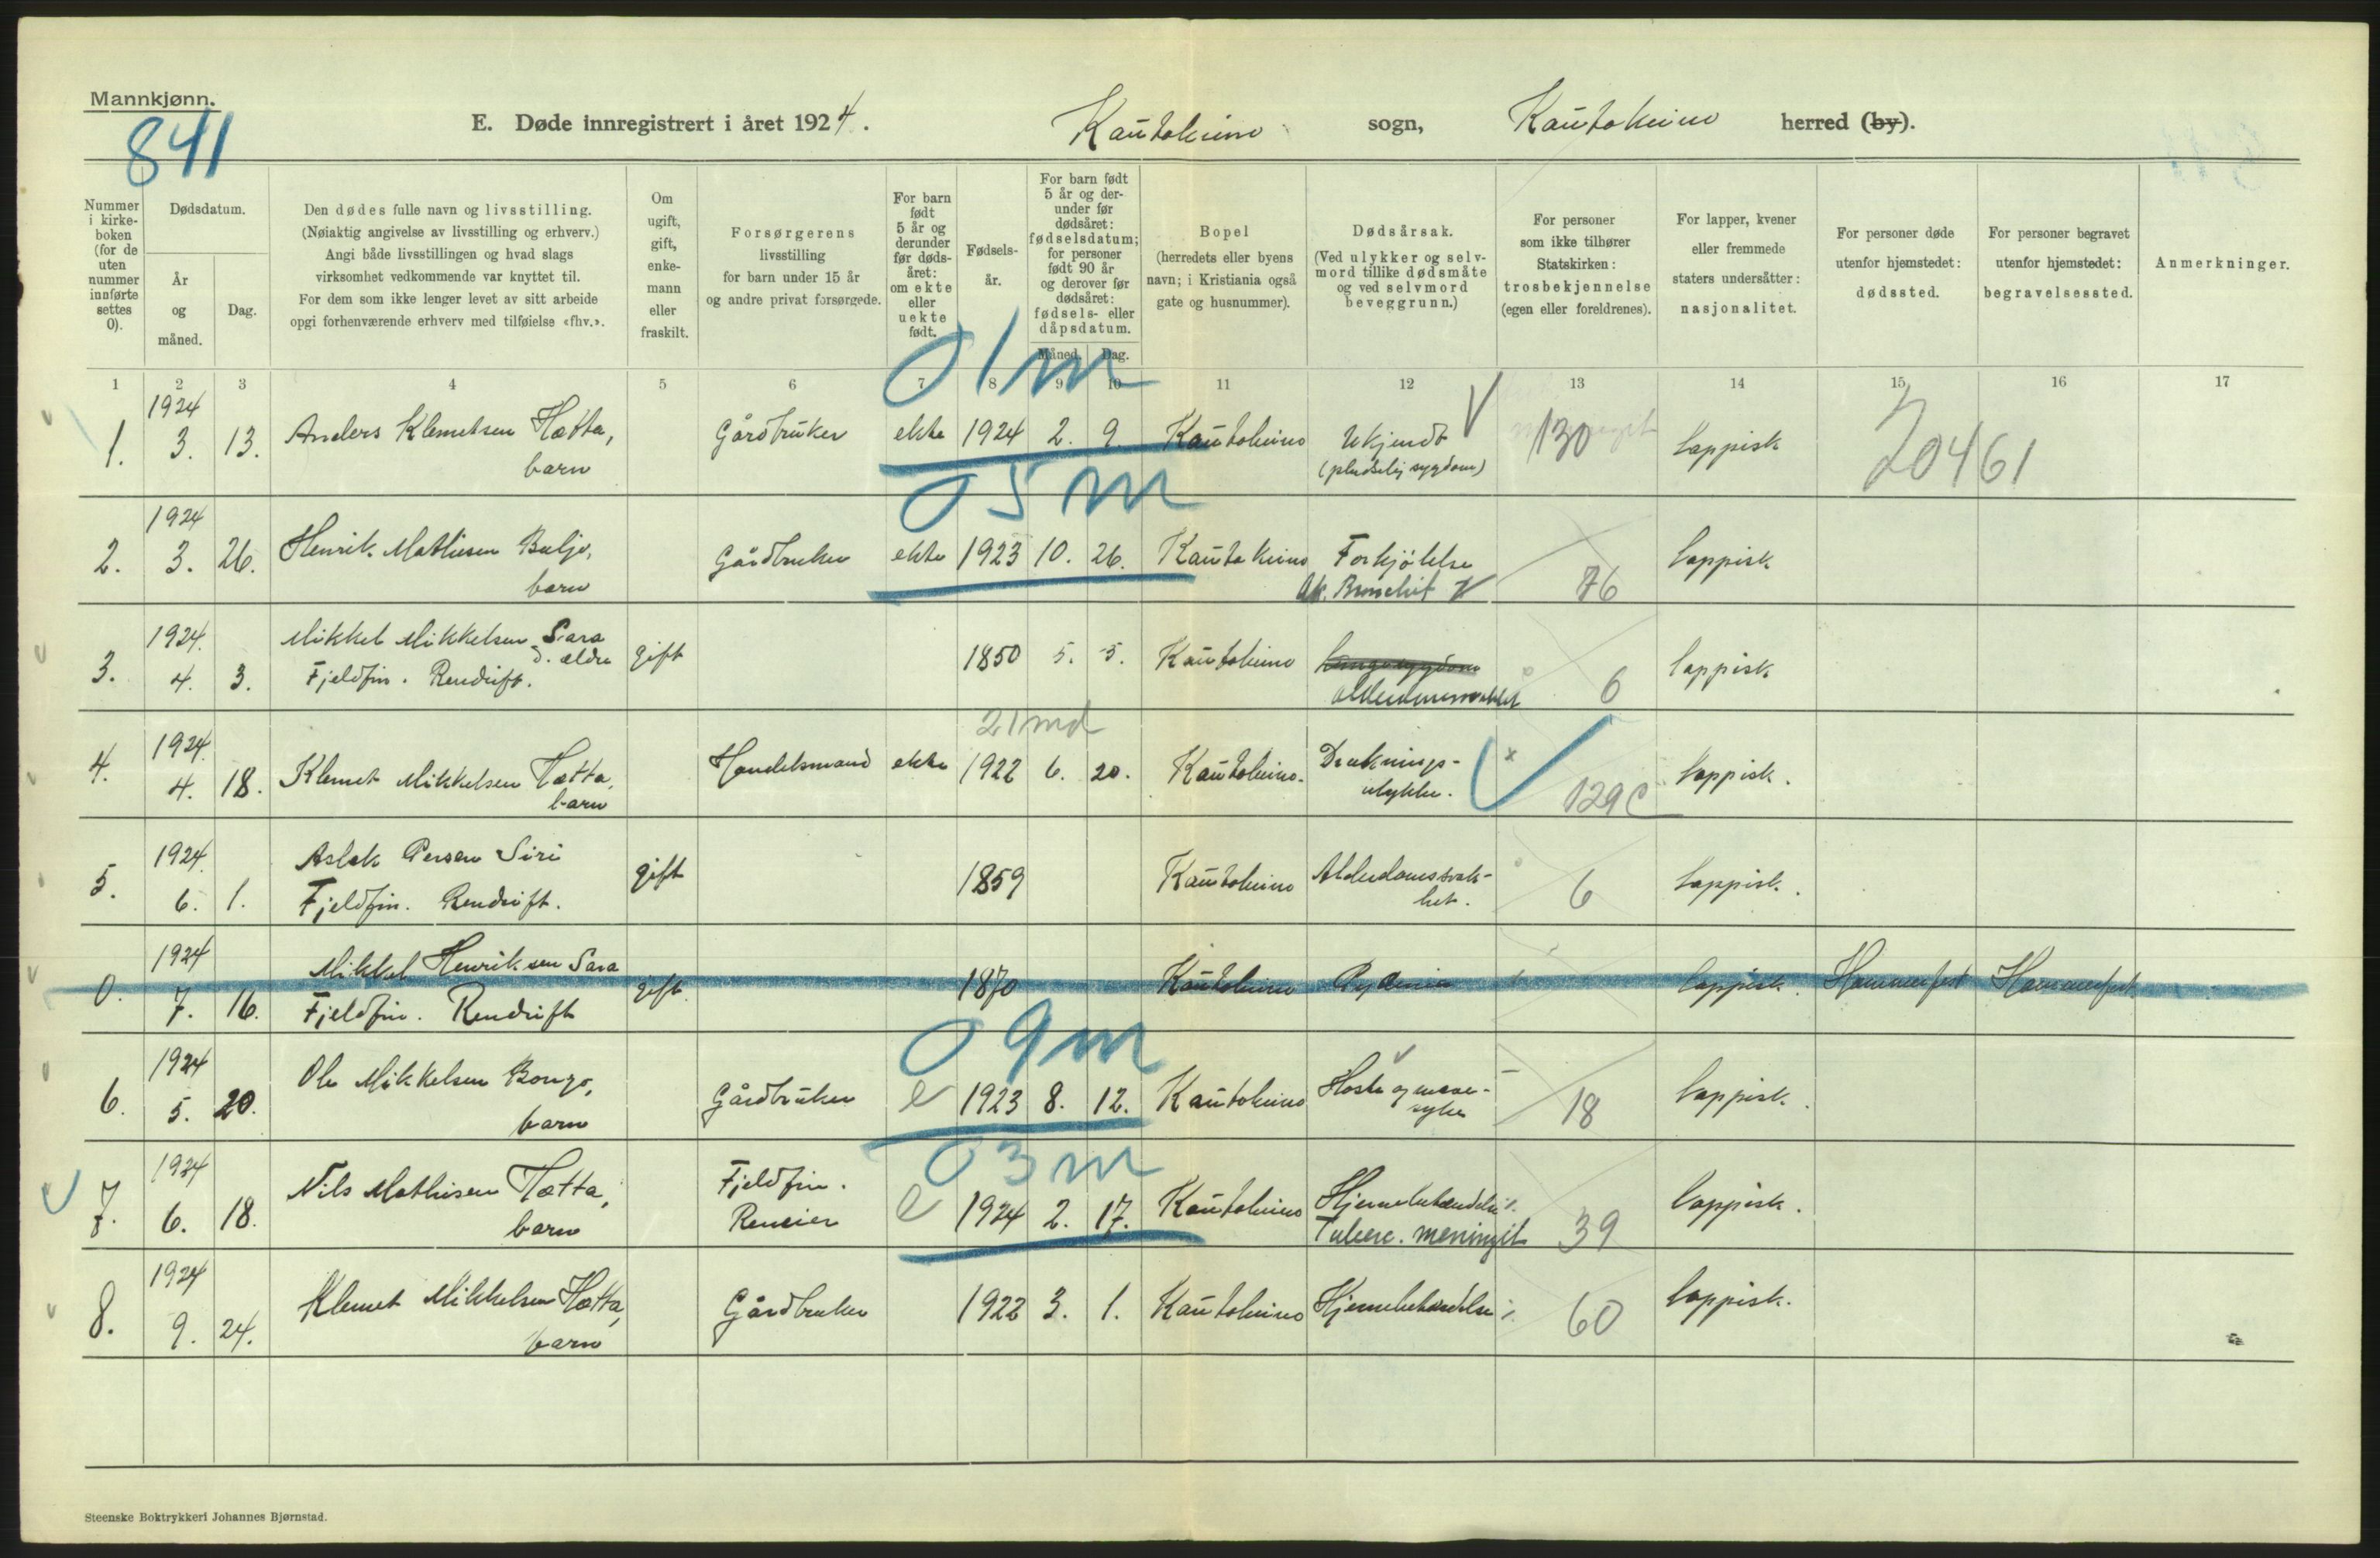 Mannkjønn.
841
E. Døde innregistrert i året 1924.
Kautokeino sogn, Kautokeino herred (by).
Nummer i kirke-boken (for de uten nummer innførte settes 0).
Dødsdatum.
År og måned.
Dag.
Den dødes fulle navn og livsstilling.
(Nøiaktig angivelse av livsstilling og erhverv.)
Angi både livsstillingen og hvad slags
virksomhet vedkommende var knyttet til.
For dem som ikke lenger levet av sitt arbeide
opgi forhenværende erhverv med tilføielse «fhv.».
Om ugift, gift, enke-mann eller fraskilt.
Forsørgerens
livsstilling
for barn under 15 år
og andre privat forsørgede.
For barn født 5 år og derunder før døds-året: om ekte eller uekte født.
Fødsels-år.
For barn født 5 år og der-under før dødsåret: fødselsdatum; for personer født 90 år og derover før dødsåret: fødsels- eller dåpsdatum.
Måned. Dag.
Bopel
(herredets eller byens
navn; i Kristiania også
gate og husnummer).
Dødsårsak.
(Ved ulykker og selv-
mord tillike dødsmåte
og ved selvmord
beveggrunn.)
For personer
som ikke tilhører
Statskirken:
trosbekjennelse
(egen eller foreldrenes).
For lapper, kvener
eller fremmede
staters undersåtter:
nasjonalitet.
For personer døde
utenfor hjemstedet:
dødssted.
For personer begravet
utenfor hjemstedet:
begravelsessted.
Anmerkninger.
1 2 3 4 5 6 7 8 9 10 11 12 13 14 15 16 17
01 m
1. 1924 3. 13. Anders Klemetsen Hætta, barn Gårdbruker ekte 1924 2. 9. Kautokeino Ukjendt (pludselig sygdom) 130 Lappisk 20461
05 m
2. 1924 3. 26. Henrik Mathisen Buljo, barn Gårdbruker ekte 1923 10. 26. Kautokeino Forkjølelse Ak. Bronchit 76 Lappisk
3. 1924. 4. 3. Mikkel Mikkelsen Sara d. ældre Fjeldfin. Rendrift. gift 1850 5. 5. Kautokeino Alderdomssvakhet 6 Lappisk
21 md
4. 1924. 4. 18. Klemet Mikkelsen Hætta, barn Handelsmand ekte 1922 6. 20. Kautokeino. Druknings-
ulykke. 129 c Lappisk.
5. 1924. 6. 1. Aslak Persen Siri Fjeldfin. Rendrift. gift 1859 Kautokeino Alderdomssvak-
het. 6 Lappisk.
0. 1924 7. 16. Mikkel Henriksen Sara Fjeldfin. Rendrift gift. 1870 Kautokeino Lappisk. Hammerfest Hammerfest
09 m
6. 1924 5. 20. Ole Mikkelsen Bongo, barn Gårdbruker e 1923 8. 12. Kautokeino Hoste og 18 Lappisk.
03 m
7. 1924 6. 18. Nils Mathisen Hætta, barn Fjeldfin. Reneier e 1924 2. 17. Kautokeino Hjernebetændelse Tuberc. meningit 39 Lappisk.
8. 1924 9. 24. Klemet Mikkelsen Hætta, barn Gårdbruker 1922 3. 1. Kautokeino Hjernebetændelse 60 Lappisk.
Steenske Boktrykkeri Johannes Bjørnstad.